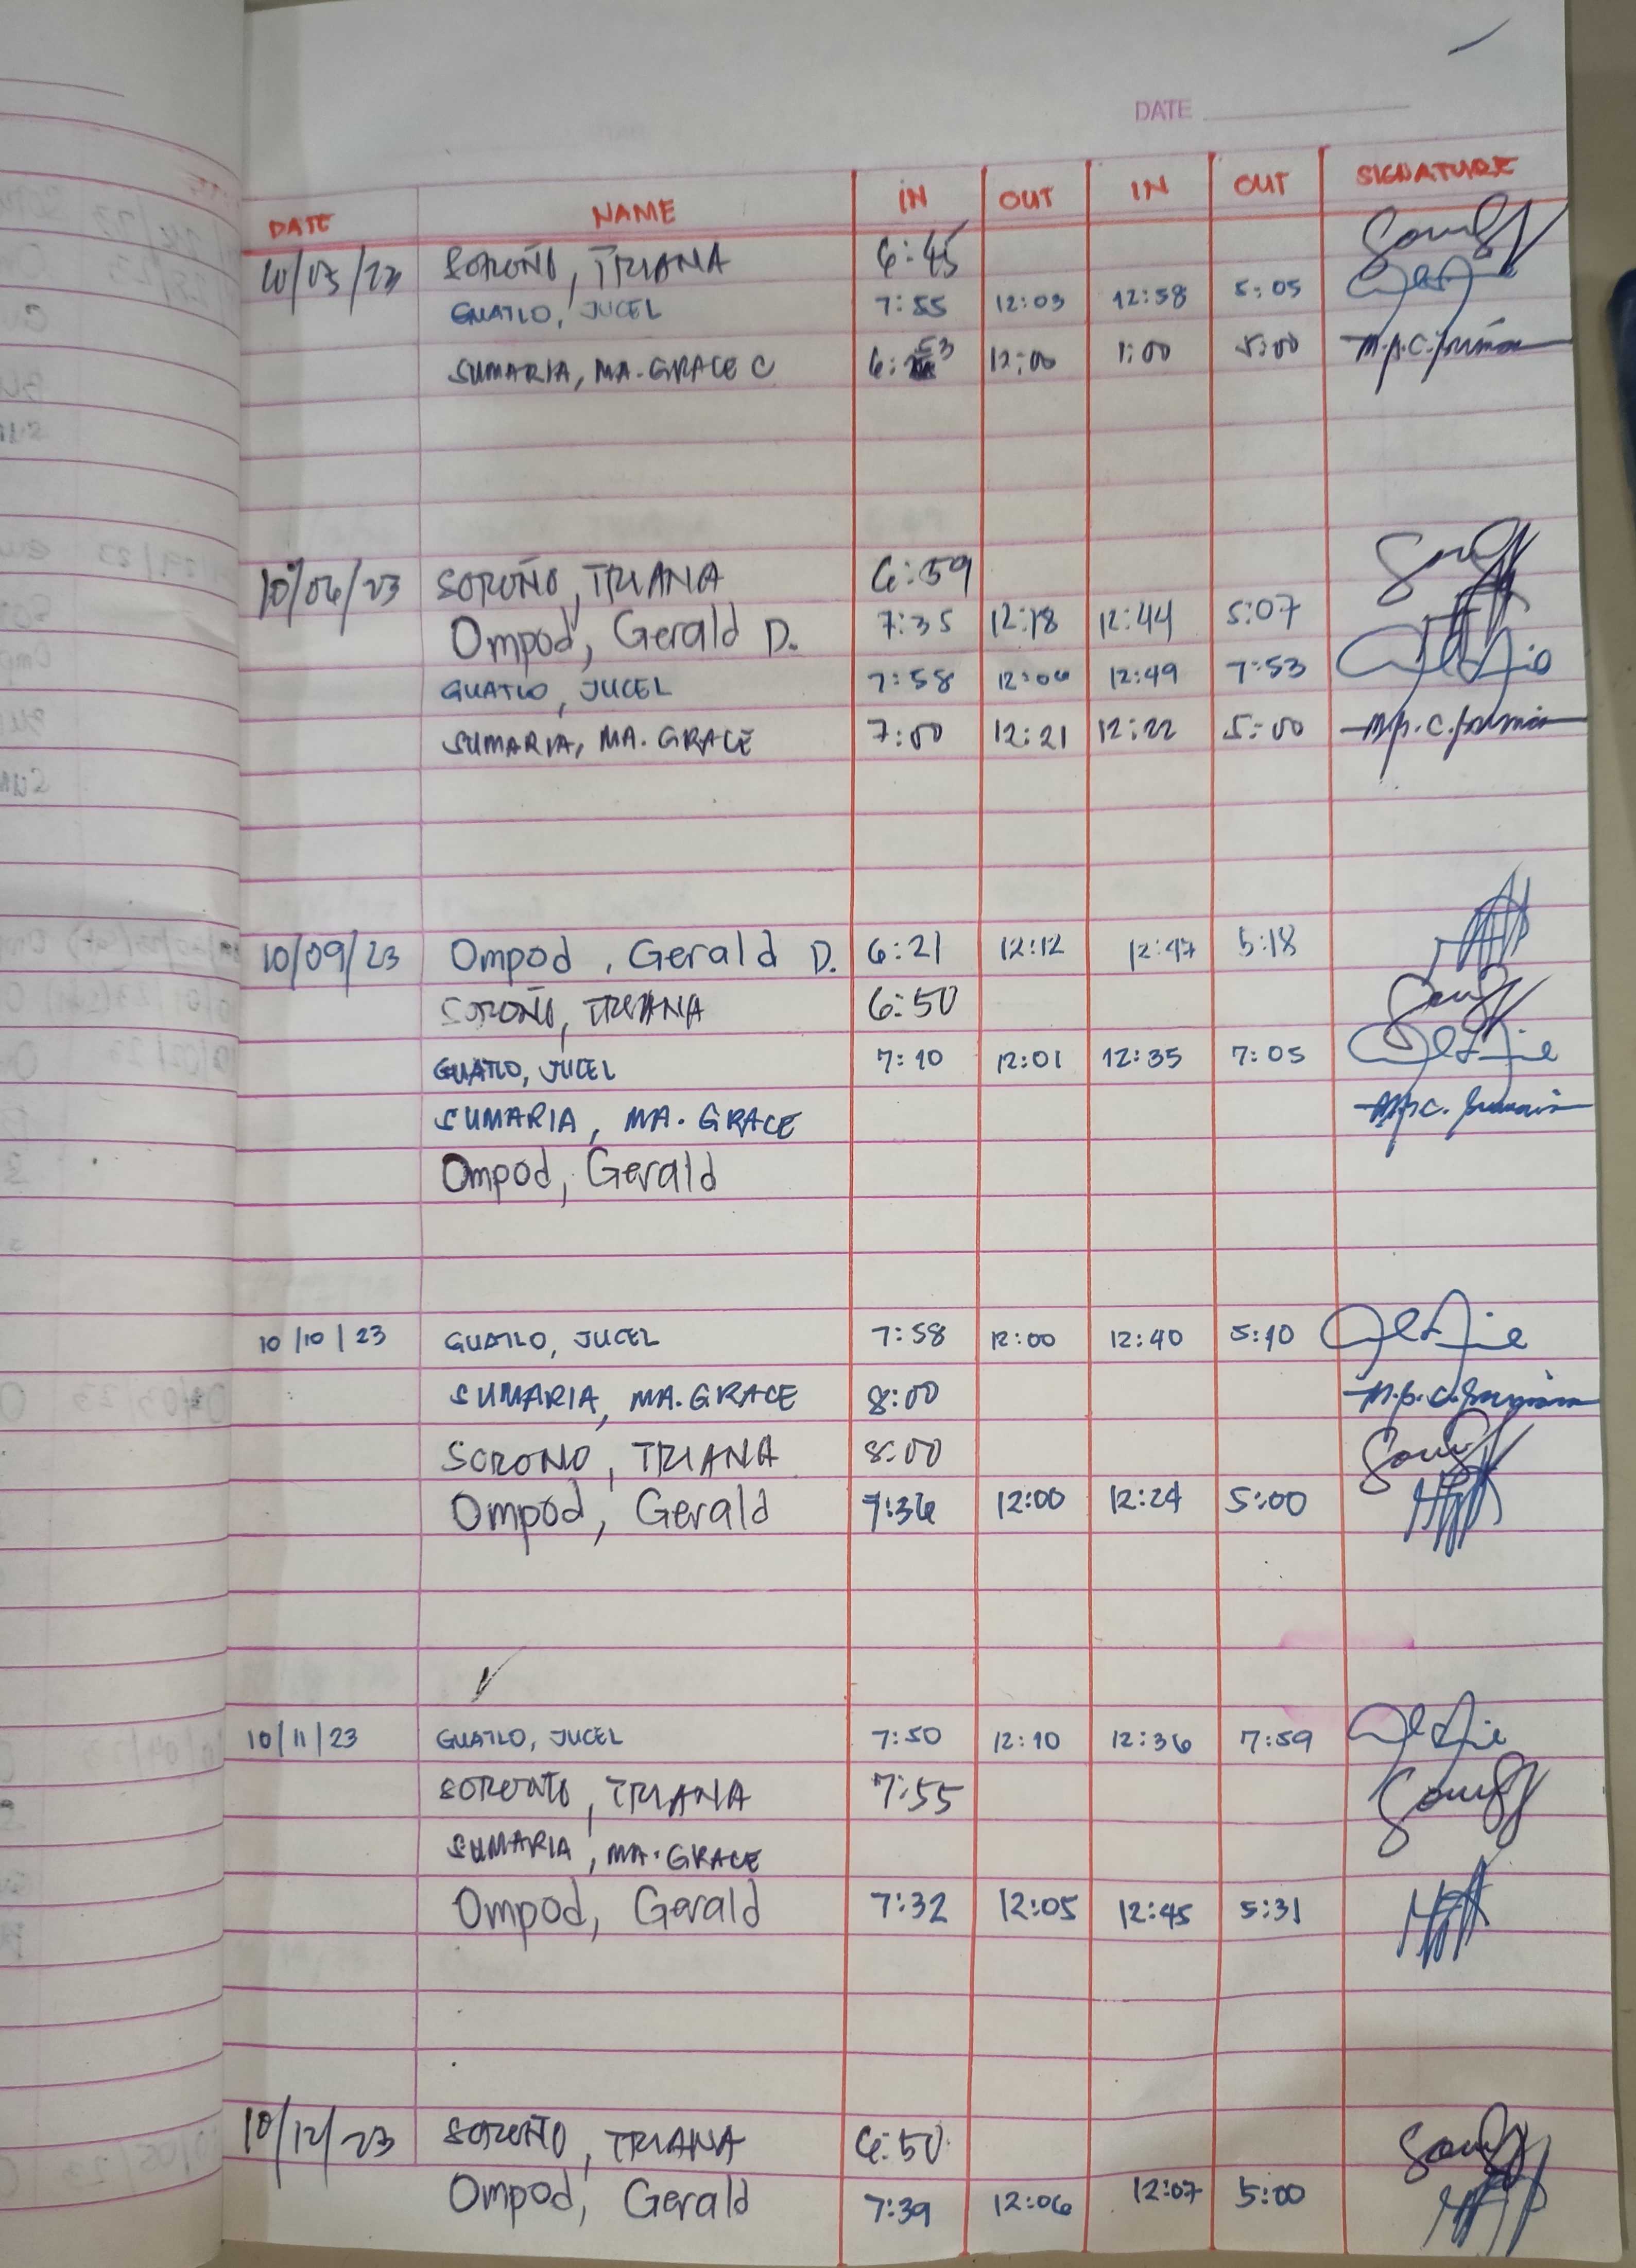 DATE
DATE NAME IN OUT IN OUT SIGNATURE
10/05/23 SOROÑO, TRIANA 6:45
GUATLO, JUCEL 7:55 12:03 12:58 5:05
SUMARIA, MA. GRACE C 6:53 12:00 1:00 5:00
10/06/23 SOROÑO, TRIANA 6:59
Ompod, Gerald D. 7:35 12:18 12:44 5:07
GUATLO, JUCEL 7:58 12:06 12:49 7:53
SUMARIA, MA. GRACE 7:00 12:21 12:22 5:00
10/09/23 Ompod, Gerald D. 6:21 12:12 12:47 5:18
SOROÑO, TRIANA 6:50
GUATLO, JUCEL 7:10 12:01 12:35 7:05
SUMARIA, MA. GRACE
Ompod, Gerald
10/10/23 GUATLO, JUCEL 7:58 12:00 12:40 5:10
SUMARIA, MA. GRACE 8:00
SOROÑO, TRIANA 8:00
Ompod, Gerald 7:36 12:00 12:24 5:00
10/11/23 GUATLO, JUCEL 7:50 12:10 12:36 7:59
SOROÑO, TRIANA 7:55
SUMARIA, MA. GRACE
Ompod, Gerald 7:32 12:05 12:45 5:31
10/12/23 SOROÑO, TRIANA 6:50
Ompod, Gerald 7:39 12:06 12:07 5:00